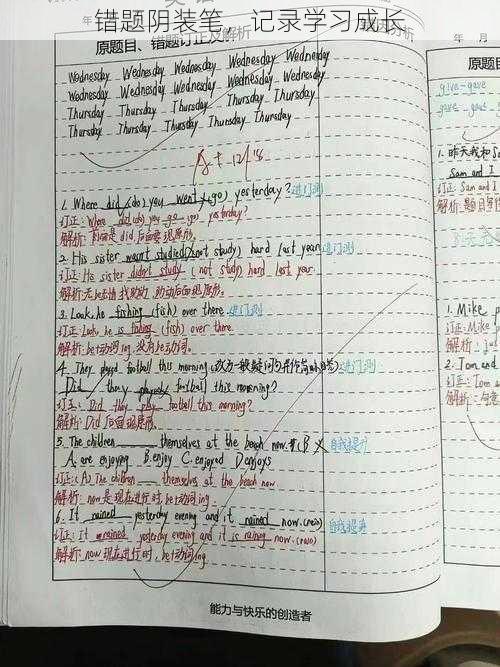 错题阴装笔，记录学习成长
原题目、错题订正及解析
Wednesday Wednesday Wednesday Wednesday Wednesday
Wednesday Wednesday Wednesday Wednesday Wednesday
Thursday Thursday Thursday Thursday Thursday
Thursday Thursday Thursday Thursday Thursday
A+ 12/18
1. Where did (do) you went (go) yesterday? 进门测
订正: Where did (do) you go (go) yesterday?
解析: 前面是did,后面要现原形。
2. His sister wasn't studied (not study) hard last year. 进门测
订正: His sister didn't study (not study) hard last year.
解析: 助动后面现原形。
3. Look, he fishing (fish) over there. 进门测
订正: Look, he is fishing (fish) over there.
解析: be+动词ing, 没有be动词。
4. They played football this morning. 进门测
Did they played football this morning?
订正: Did they play football this morning?
解析: Did 后面现原形。
5. The children ___ themselves at the beach now. (B) × 自我提升
A. are enjoying B. enjoy C. enjoyed D. enjoys
订正: (A) The children ___ themselves at the beach now
解析: now是现在进行时, be+动词ing.
6. It rained yesterday evening and it rained now. (rain) 自我提升
订正: It rained yesterday evening and it is raining now. (rain)
解析: now 现在进行时, be+动词ing
能力与快乐的创造者
年 月
原题目
give-gave
1. 昨天我和Sam
Sam and I
订正: Sam and I
解析: 题目
1. Mike
订正: Mike
解析:
2. Tom and
订正: Tom and
解析: